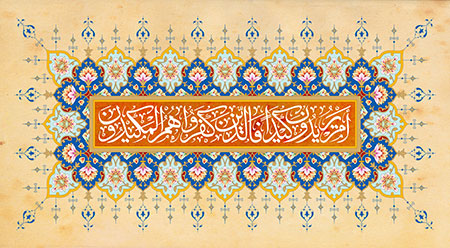 أم يريدون كيدا فالذين كفروا هم المكيدون